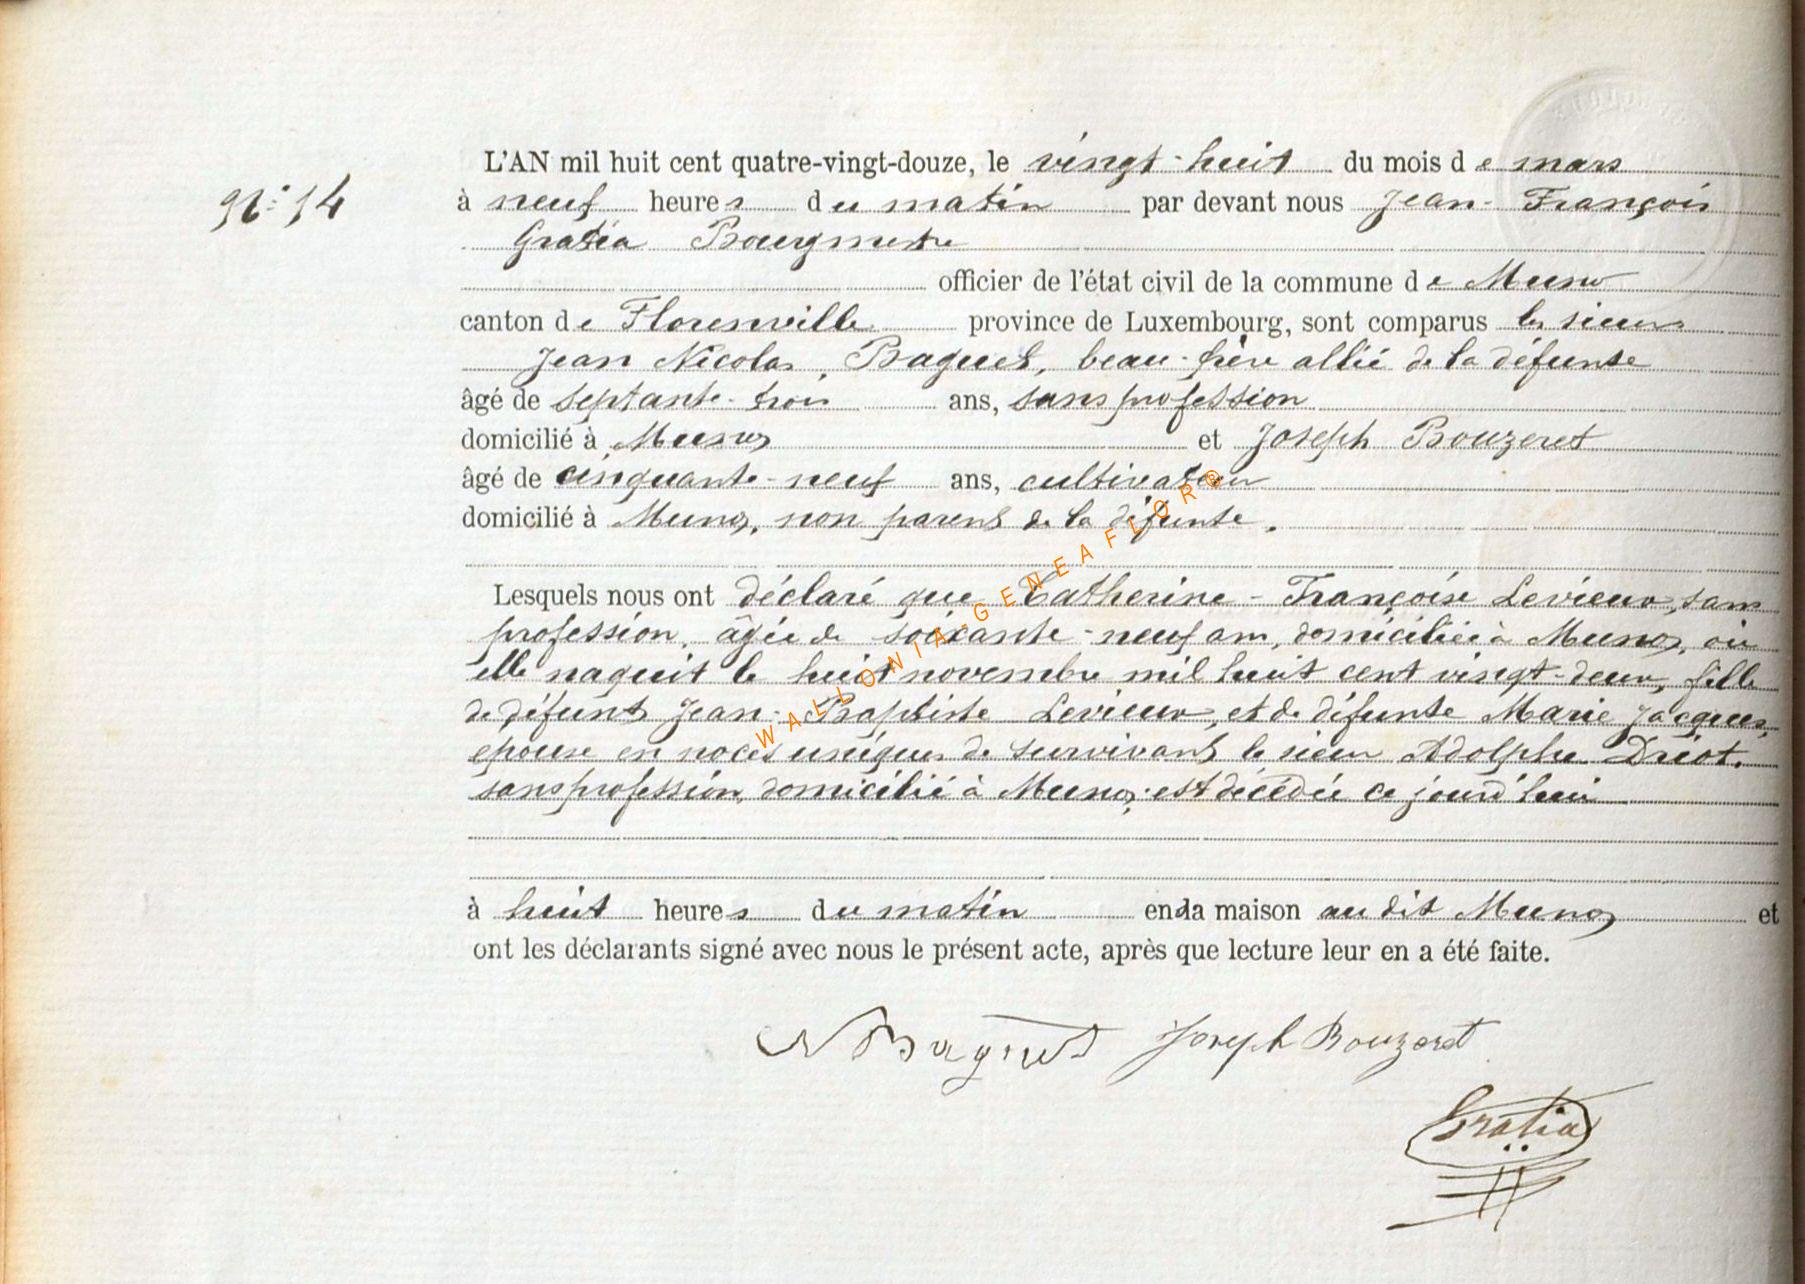 L'AN mil huit cent quatre-vingt-douze, le vingt-huit du mois de mars
N° 14
à neuf heures du matin par devant nous Jean-François
Gratia Bourgmestre
officier de l'état civil de la commune de Muno
canton de Florenville province de Luxembourg, sont comparus les sieurs
Jean Nicolas Baguet, beau-frère allié de la défunte
âgé de septante-trois ans, sans profession
domicilié à Muno et Joseph Bouzeret
âgé de cinquante-neuf ans, cultivateur
domicilié à Muno, non parent de la défunte.
Lesquels nous ont déclaré que Catherine-Françoise Levieux, sans
profession, âgée de soixante-neuf ans, domiciliée à Muno, où
elle naquit le huit novembre mil huit cent vingt-deux, fille
de défunt Jean-Baptiste Levieux, et de défunte Marie Jacques,
épouse en noces uniques de survivant le sieur Adolphe Driot,
sans profession, domicilié à Muno, est décédée ce jourd'hui
à huit heures du matin en sa maison au dit Muno et
ont les déclarants signé avec nous le présent acte, après que lecture leur en a été faite.
N Baguet Joseph Bouzeret
Gratia
WALLONIA-GENEAFLOR®